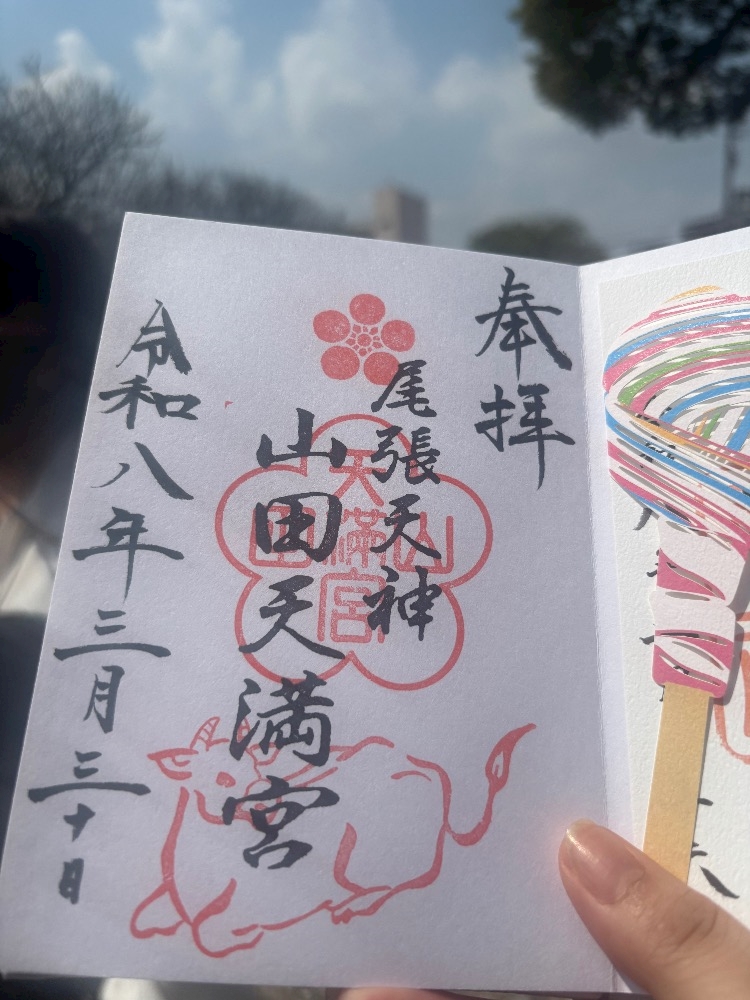 奉拝
尾張天神
山田天満宮
令和八年三月三十日
山田
天満宮